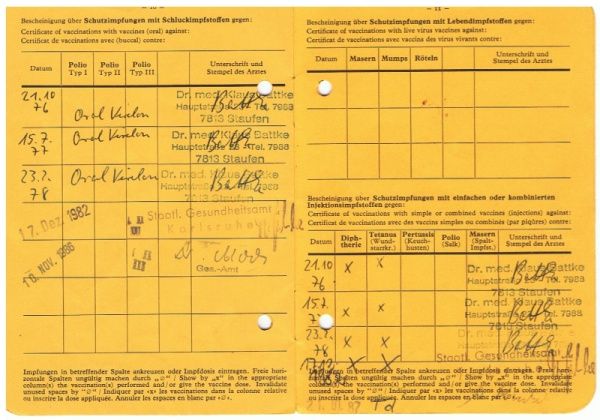 — 10 —
Bescheinigung über Schutzimpfungen mit Schluckimpfstoffen gegen:
Certificate of vaccinations with vaccines (oral) against:
Certificat de vaccinations avec (buccal) contre:
Datum
Polio Typ I
Polio Typ II
Polio Typ III
Unterschrift und Stempel des Arztes
21.10 76
Oral Virelon
Dr. med. Klaus Battke
Hauptstraße 23 Tel. 7988
7813 Staufen
15.7. 77
Oral Virelon
Dr. med. Klaus Battke
Hauptstraße 23 Tel. 7988
7813 Staufen
23.2. 78
Oral Virelon
Dr. med. Klaus Battke
Hauptstraße 23 Tel. 7988
7813 Staufen
17. Dez. 1982
Staatl. Gesundheitsamt
Karlsruhe
10. NOV. 1986
Ges.-Amt
Impfungen in betreffender Spalte ankreuzen oder Impfdosis eintragen. Freie horizontale Spalten ungültig machen durch „∅“ / Show by „x“ in the appropriate column(s) the vaccination(s) performed and/or give the vaccine dose. Invalidate unused spaces by "∅" / Indiquer par «x» les vaccinations dans la colonne relative ou inscrire la dose applicable. Annuler les espaces en blanc par «∅».
— 11 —
Bescheinigung über Schutzimpfungen mit Lebendimpfstoffen gegen:
Certificate of vaccinations with live virus vaccines against:
Certificat de vaccinations avec vaccins des virus vivants contre:
Datum
Masern
Mumps
Röteln
Unterschrift und Stempel des Arztes
Bescheinigung über Schutzimpfungen mit einfachen oder kombinierten
Injektionsimpfstoffen gegen:
Certificate of vaccinations with simple or combined vaccines (injections) against:
Certificat de vaccinations avec des vaccins simples ou combines (par piqûres) contre:
Datum
Diphtherie
Tetanus (Wundstarrkr.)
Pertussis (Keuchhusten)
Polio (Salk)
Masern (Spaltimpfs.)
Unterschrift und Stempel des Arztes
21.10 76
x x
Dr. med. Klaus Battke
Hauptstraße 23 Tel. 7988
7813 Staufen
15.7. 77
x x
Dr. med. Klaus Battke
Hauptstraße 23 Tel. 7988
7813 Staufen
23.2. 78
x x
Dr. med. Klaus Battke
Hauptstraße 23 Tel. 7988
7813 Staufen
x x
Staatl. Gesundheitsamt
Impfungen in betreffender Spalte ankreuzen oder Impfdosis eintragen. Freie horizontale Spalten ungültig machen durch „∅“ / Show by „x“ in the appropriate column(s) the vaccination(s) performed and/or give the vaccine dose. Invalidate unused spaces by "∅" / Indiquer par «x» les vaccinations dans la colonne relative ou inscrire la dose applicable. Annuler les espaces en blanc par «∅».
Td